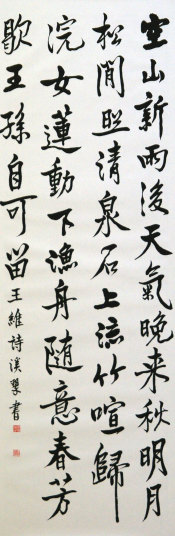 空山新雨後天氣晚来秋明月
松間照清泉石上流竹喧歸
浣女蓮動下漁舟随意春芳
歇王孫自可留王維詩溪翠書